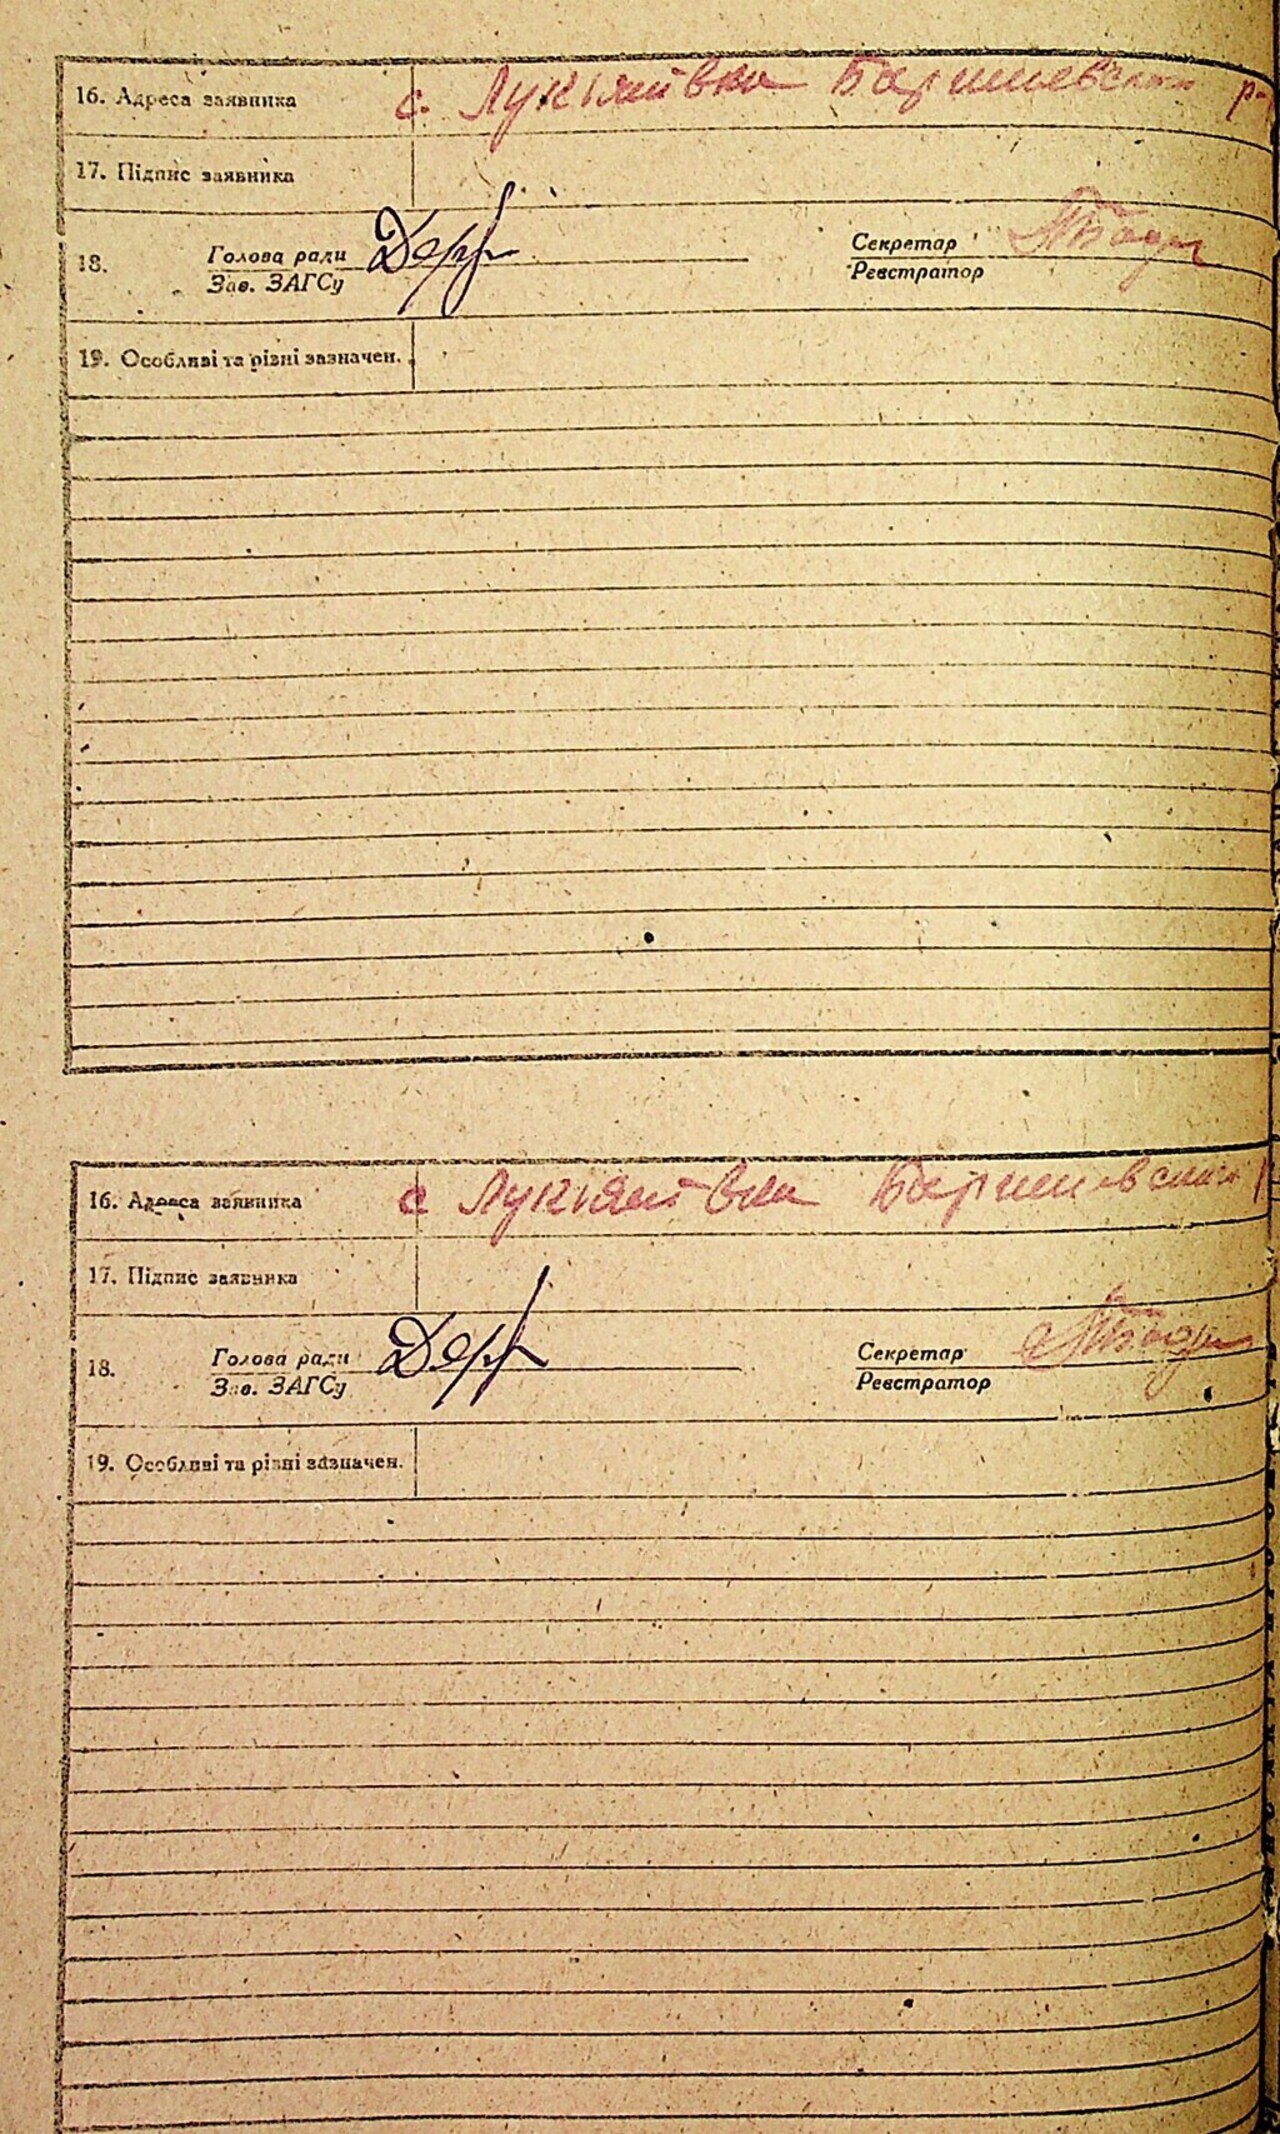 16. Адреса заявника с. Лукьянівка Баришевского р-
17. Підпис заявника
18. Голова ради Секретар
Зав. ЗАГСу Реєстратор
19. Особливі та різні зазначен.
16. Адреса заявника с Лукьянівка Баришевского
17. Підпис заявника
18. Голова ради Секретар
Зав. ЗАГСу Реєстратор
19. Особливі та різні зазначен.